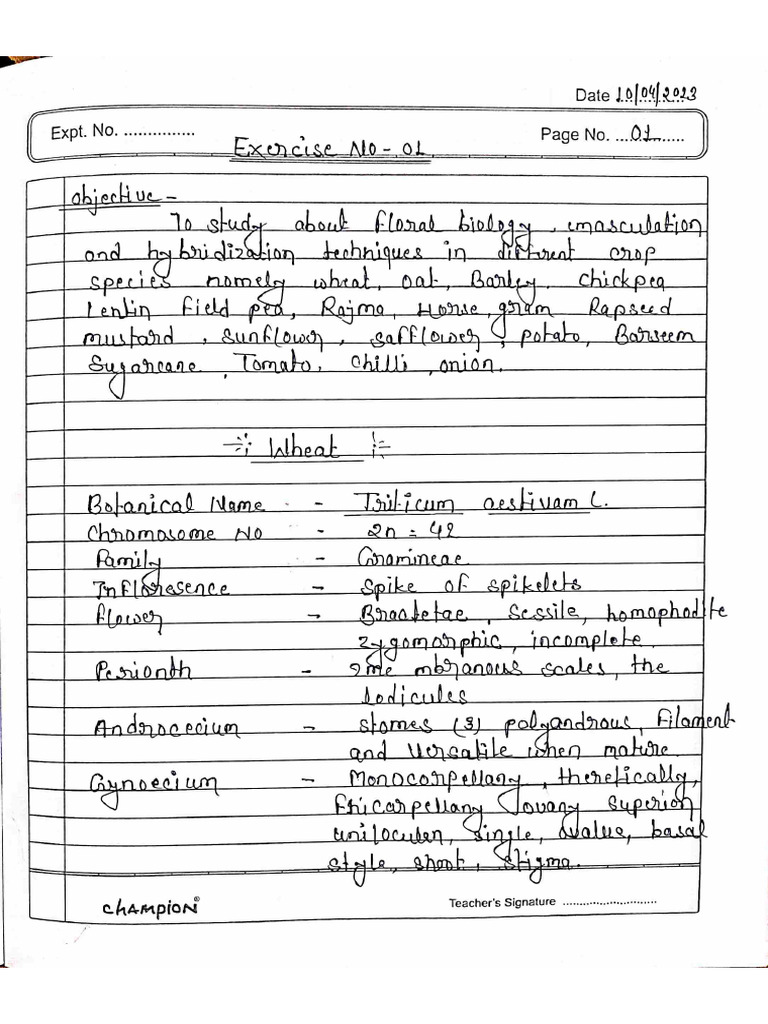 Date 10/04/2023
Expt. No. ...............
Page No. ...01..........
Exercise No - 01
Objective -
To study about floral biology, imasculation
and hybridization techniques in different crop
species namely wheat, oat, Barley, chickpea
Lentin Field pea, Rajma, Horse, gram Rapseed
mustard, sunflower, safflower, potato, Barseem
Sugarcane, Tomato, Chilli, onion.
Wheat
Botanical Name - Triticum aestivam L.
Chromasome No - 2n = 42
Family - Gramineae
Infloresence - Spike of spikelets
flower - Bracteate, Sessile, homophodite
zygomorphic, incomplete
Perionth - 2me mbranous scales, the
lodicules
Androcecium - stomes (3) polyandrous, Filament
and Versatile when mature
Gynoecium - Monocorpellany, theretically,
tricarpellany ovany superion
uniloculen, single, ovalue, basal
style, shont, stigma.
CHAMPION®
Teacher's Signature ...........................